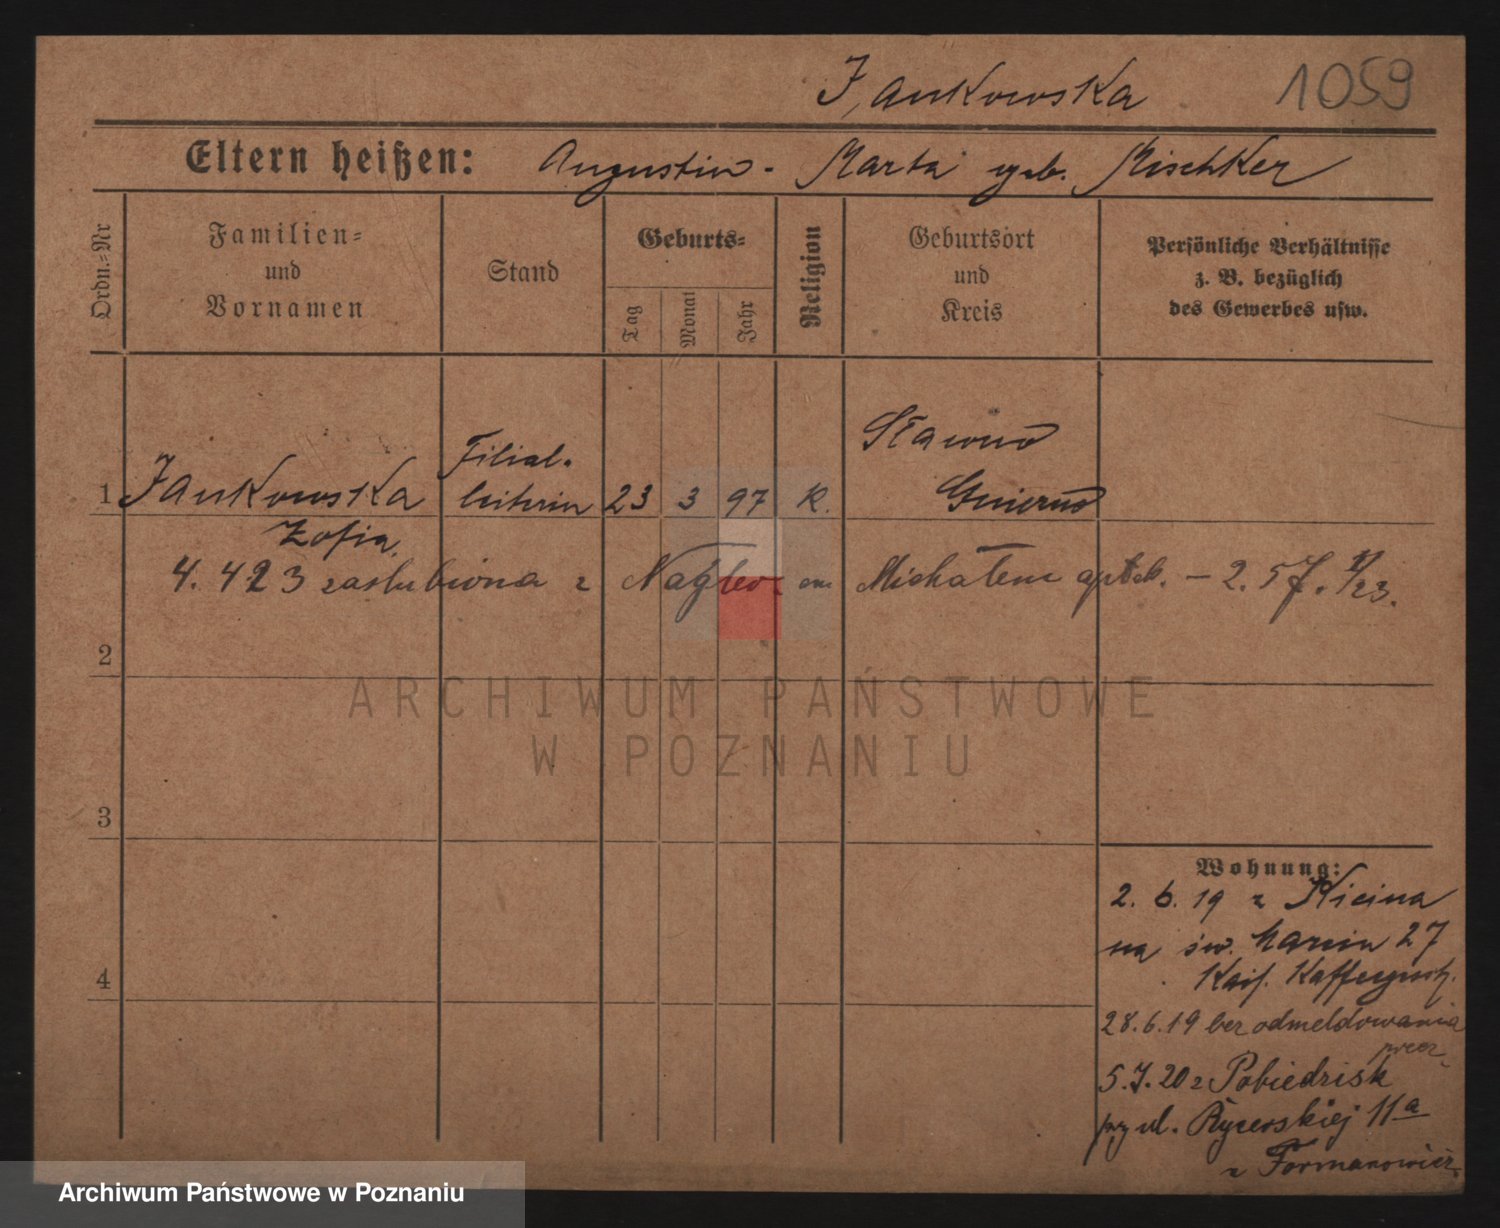 Jankowska 1059
Eltern heißen: Augustin - Marta geb. Mischker
Ordn.=Nr
Familien=
und
Vornamen
Stand
Geburts=
Tag
Monat
Jahr
Religion
Geburtsort
und
Kreis
Persönliche Verhältnisse
z. B. bezüglich
des Gewerbes usw.
Sławno
Filial-
1 Jankowska leiterin 23 3 97 K. Gniezno
Zofia
4. 4 23 zaślubiona z Michałem aptek. – 2.57.
2
ARCHIWUM PAŃSTWOWE
W POZNANIU
3
Wohnung:
2. 6. 19 z Kicina
na św. Marcin 27
4
Kais. Kaffeegesch.
28.6.19 bez odmeldowania
precz
5.7.20 z Pobiedzisk
przy ul. Rycerskiej 11a
z Formanowicz
Archiwum Państwowe w Poznaniu